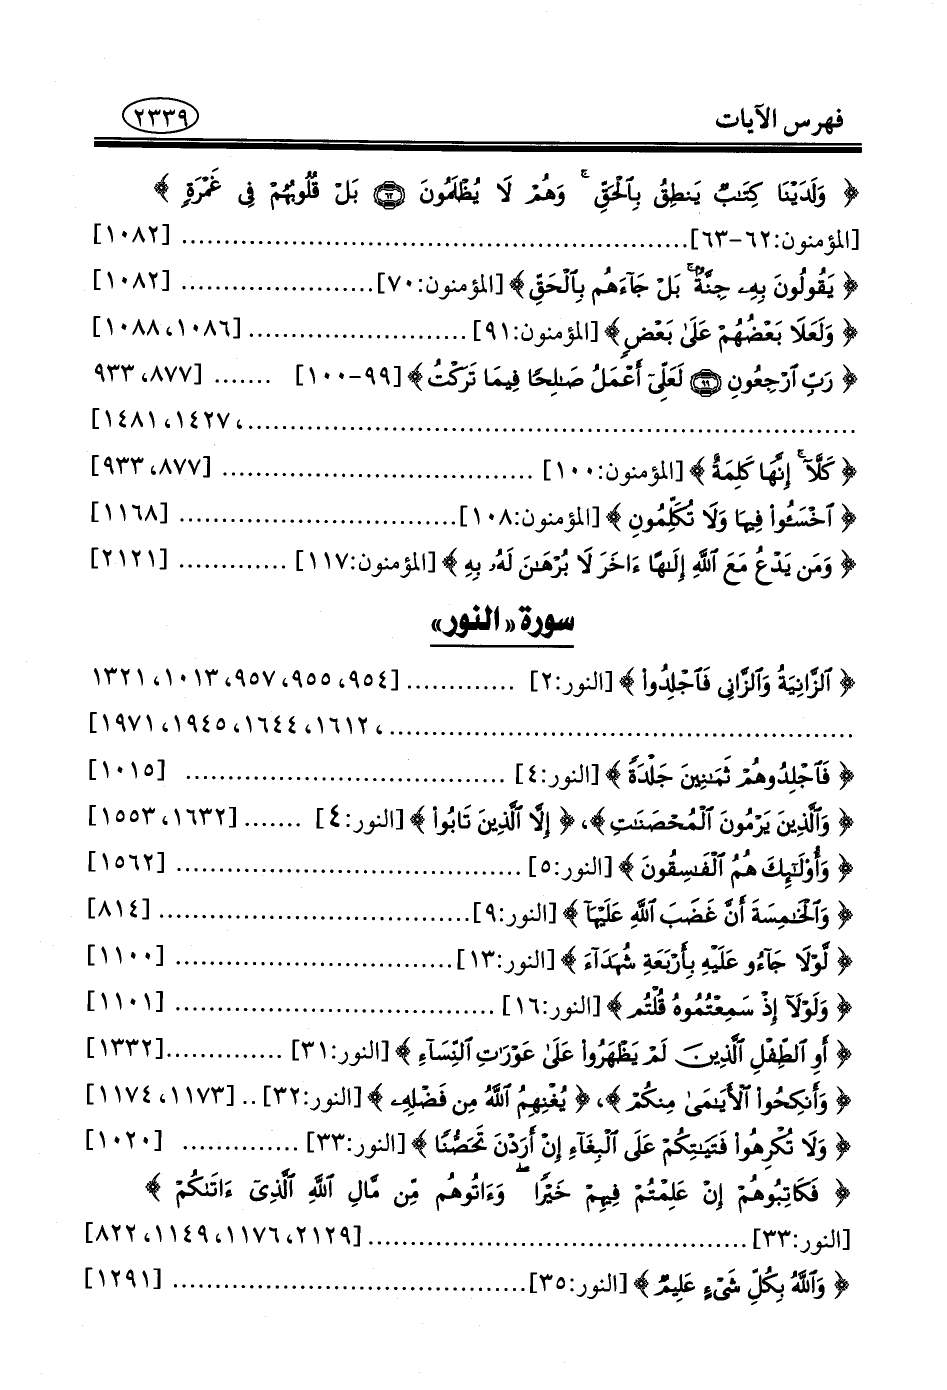 فهرس الآيات ٢٣٣٩
﴿ وَلَدَيْنَا كِتَٰبٌ يَنطِقُ بِٱلْحَقِّ ۚ وَهُمْ لَا يُظْلَمُونَ ۝٦٢ بَلْ قُلُوبُهُمْ فِى غَمْرَةٍ ﴾
[المؤمنون:٦٢-٦٣] ........ [١٠٨٢]
﴿ يَقُولُونَ بِهِۦ جِنَّةٌۢ ۚ بَلْ جَآءَهُم بِٱلْحَقِّ ﴾ [المؤمنون:٧٠] ........ [١٠٨٢]
﴿ وَلَعَلَا بَعْضُهُمْ عَلَىٰ بَعْضٍ ﴾ [المؤمنون:٩١] ........ [١٠٨٦، ١٠٨٨]
﴿ رَبِّ ٱرْجِعُونِ ۝٩٩ لَعَلِّىٓ أَعْمَلُ صَٰلِحًا فِيمَا تَرَكْتُ ﴾ [٩٩-١٠٠] ....... [٨٧٧، ٩٣٣
........ ، ١٤٢٧، ١٤٨١]
﴿ كَلَّآ ۚ إِنَّهَا كَلِمَةٌ ﴾ [المؤمنون:١٠٠] ........ [٨٧٧، ٩٣٣]
﴿ ٱخْسَـُٔوا۟ فِيهَا وَلَا تُكَلِّمُونِ ﴾ [المؤمنون:١٠٨] ........ [١١٦٨]
﴿ وَمَن يَدْعُ مَعَ ٱللَّهِ إِلَٰهًا ءَاخَرَ لَا بُرْهَٰنَ لَهُۥ بِهِ ﴾ [المؤمنون:١١٧] ........ [٢١٢١]
سورة «النور»
﴿ ٱلزَّانِيَةُ وَٱلزَّانِى فَٱجْلِدُوا۟ ﴾ [النور:٢] ........ [٩٥٤، ٩٥٥، ٩٥٧، ١٠١٣، ١٣٢١
........ ، ١٦١٢، ١٦٤٤، ١٩٤٥، ١٩٧١]
﴿ فَٱجْلِدُوهُمْ ثَمَٰنِينَ جَلْدَةً ﴾ [النور:٤] ........ [١٠١٥]
﴿ وَٱلَّذِينَ يَرْمُونَ ٱلْمُحْصَنَٰتِ ﴾، ﴿ إِلَّا ٱلَّذِينَ تَابُوا۟ ﴾ [النور:٤] ....... [١٦٣٢، ١٥٥٣]
﴿ وَأُو۟لَٰٓئِكَ هُمُ ٱلْفَٰسِقُونَ ﴾ [النور:٥] ........ [١٥٦٢]
﴿ وَٱلْخَٰمِسَةَ أَنَّ غَضَبَ ٱللَّهِ عَلَيْهَآ ﴾ [النور:٩] ........ [٨١٤]
﴿ لَّوْلَا جَآءُو عَلَيْهِ بِأَرْبَعَةِ شُهَدَآءَ ﴾ [النور:١٣] ........ [١١٠٠]
﴿ وَلَوْلَآ إِذْ سَمِعْتُمُوهُ قُلْتُم ﴾ [النور:١٦] ........ [١١٠١]
﴿ أَوِ ٱلطِّفْلِ ٱلَّذِينَ لَمْ يَظْهَرُوا۟ عَلَىٰ عَوْرَٰتِ ٱلنِّسَآءِ ﴾ [النور:٣١] ........ [١٣٣٢]
﴿ وَأَنكِحُوا۟ ٱلْأَيَٰمَىٰ مِنكُمْ ﴾، ﴿ يُغْنِهِمُ ٱللَّهُ مِن فَضْلِهِۦ ﴾ [النور:٣٢] .. [١١٧٣، ١١٧٤]
﴿ وَلَا تُكْرِهُوا۟ فَتَيَٰتِكُمْ عَلَى ٱلْبِغَآءِ إِنْ أَرَدْنَ تَحَصُّنًا ﴾ [النور:٣٣] ........ [١٠٢٠]
﴿ فَكَاتِبُوهُمْ إِنْ عَلِمْتُمْ فِيهِمْ خَيْرًا ۖ وَءَاتُوهُم مِّن مَّالِ ٱللَّهِ ٱلَّذِىٓ ءَاتَىٰكُمْ ﴾
[النور:٣٣] ........ [٢١٢٩، ١١٧٦، ١١٤٩، ٨٢٢]
﴿ وَٱللَّهُ بِكُلِّ شَىْءٍ عَلِيمٌ ﴾ [النور:٣٥] ........ [١٢٩١]